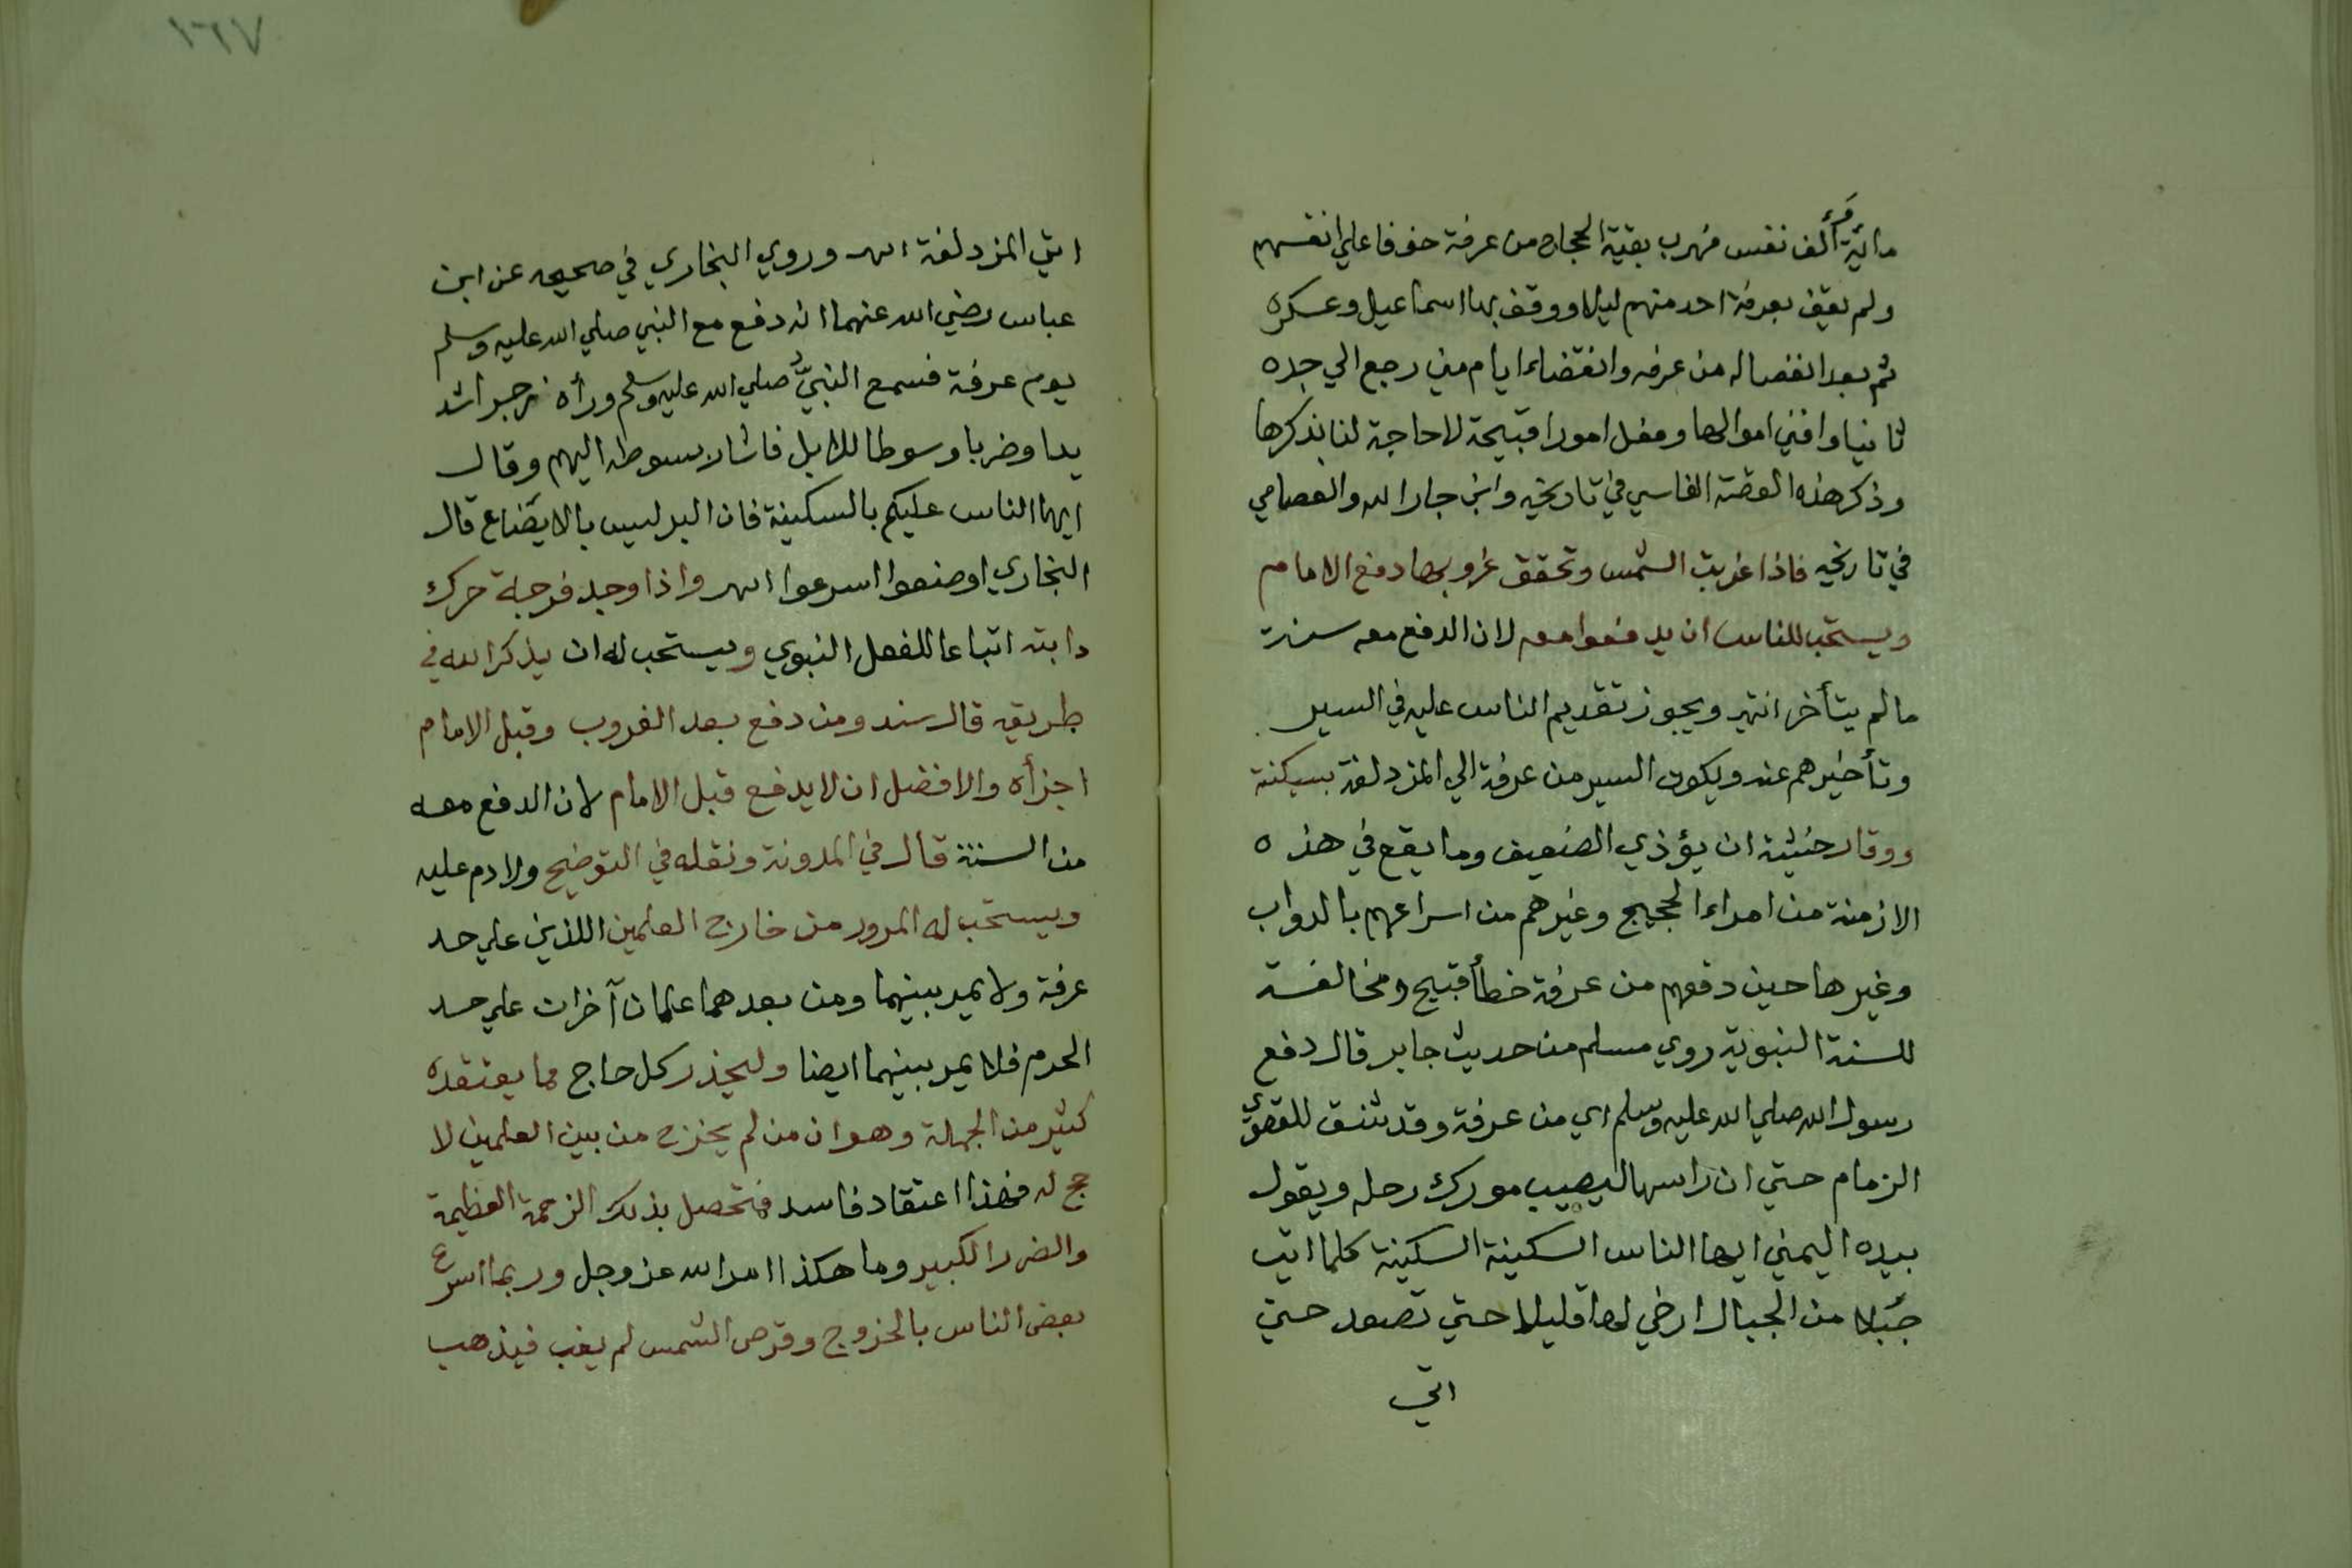 مائة ألف نفس فهرب بقية الحجاج من عرفة خوفا علي انفسهم
ولم يقف بعرفة احد منهم ليلا ووقف بها اسماعيل وعسكره
ثم بعد انفصاله من عرفه وانقضاء ايام مني رجع الي جده
ثانيا وافني اموالها وفعل امورا قبيحة لا حاجة لنا بذكرها
وذكر هذه القصة الفاسي في تاريخه وابن جار الله والعصامي
في تاريخه فاذا غربت الشمس وتحقق غروبها دفع الامام
ويستحب للناس ان يدفعوا معه لان الدفع معه سنة
ما لم يتأخر انتهي ويجوز تقديم الناس عليه في السير
وتأخيرهم عنه ويكون السير من عرفة الي المزدلفة بسكينة
ووقار خشية ان يؤذي الضعيف وما يقع في هذه
الازمنة من امراء الحجيج وغيرهم من اسراعهم بالدواب
وغيرها حين دفعهم من عرفة خطأ قبيح ومخالفة
للسنة النبوية روي مسلم من حديث جابر قال دفع
رسول الله صلي الله عليه وسلم اي من عرفة وقد شنق للقصوي
الزمام حتي ان راسها ليصيب مورك رحله ويقول
بيده اليمني ايها الناس السكينة السكينة كلما اتي
جبلا من الجبال ارخي لها قليلا حتي تصعد حتي
اتي
١٦٧
اتي المزدلفة اهـ وروي البخاري في صحيحه عن ابن
عباس رضي الله عنهما انه دفع مع النبي صلي الله عليه وسلم
يوم عرفة فسمع النبي صلي الله عليه وسلم ورأه زجرا شد
يدا وضربا وسوطا للابل فاشار بسوطه اليهم وقال
ايها الناس عليكم بالسكينة فان البر ليس بالايضاع قال
البخاري اوضعوا اسرعوا اهـ واذا وجد فرجة حرك
دابته اتباعا للفعل النبوي ويستحب له ان يذكر الله في
طريقه قال سند ومن دفع بعد الغروب وقبل الامام
اجزأه والافضل ان لا يدفع قبل الامام لان الدفع معه
من السنة قال في المدونة ونقله في التوضيح ولا دم عليه
ويستحب له المرور من خارج العلمين اللذين علي حد
عرفة ولا يمر بينهما ومن بعدهما علمان آخران علي حد
الحرم فلا يمر بينهما ايضا وليحذر كل حاج مما يعتقده
كثير من الجهلة وهو ان من لم يخرج من بين العلمين لا
حج له فهذا اعتقاد فاسد فتحصل بذلك الزحمة العظيمة
والضرر الكبير وما هكذا امر الله عز وجل وربما اسرع
بعض الناس بالخروج وقرص الشمس لم يغب فيذهب